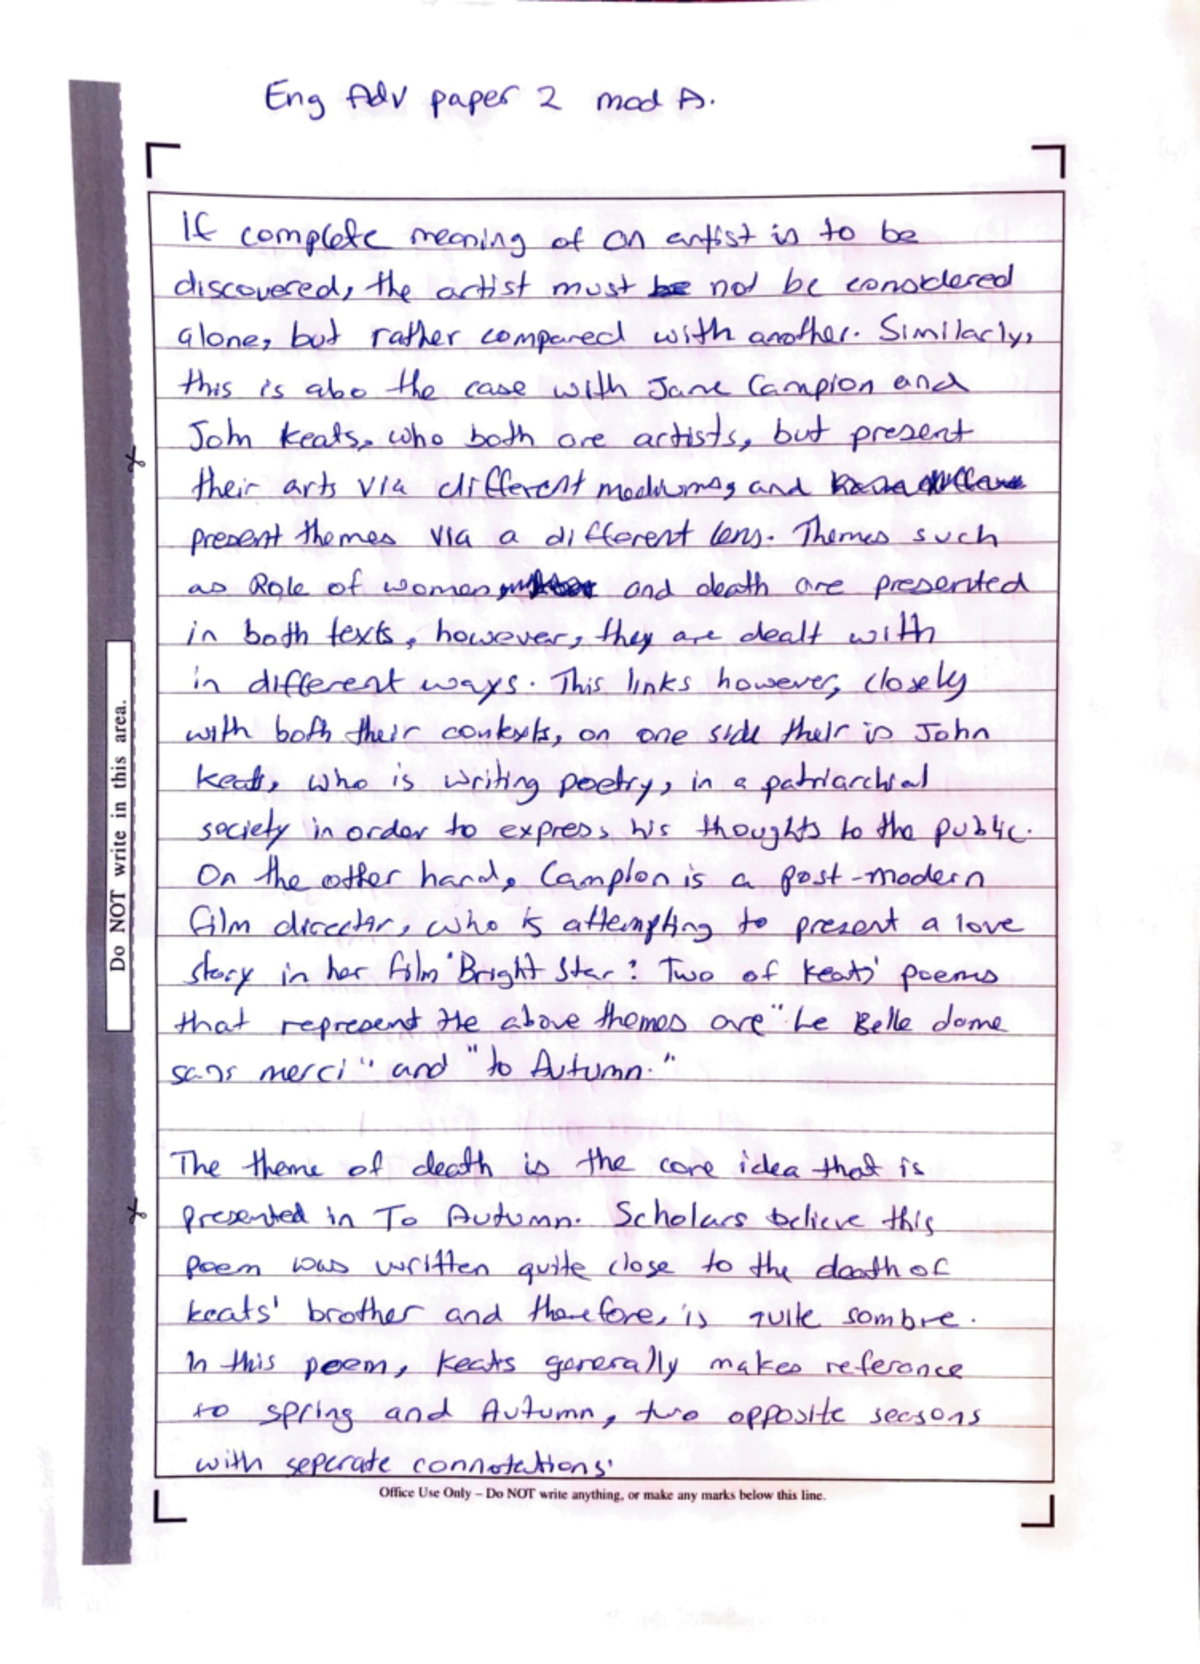 Eng Adv paper 2 mod A.
If complete meaning of an artist is to be
discovered, the artist must be not be considered
alone, but rather compared with another. Similarly,
this is also the case with Jane Campion and
John Keats, who both are artists, but present
their arts via different mediums, and
present themes via a different lens. Themes such
as Role of women and death are presented
in both texts, however, they are dealt with
in different ways. This links however, closely
with both their contexts, on one side their is John
Keats, who is writing poetry, in a patriarchial
society in order to express his thoughts to the public.
On the other hand, Campion is a post-modern
film director, who is attempting to present a love
story in her film 'Bright Star'. Two of Keats' poems
that represent the above themes are "Le Belle dame
sans merci" and "to Autumn."
The theme of death is the core idea that is
presented in To Autumn. Scholars believe this
poem was written quite close to the death of
Keats' brother and therefore, is quite sombre.
In this poem, Keats generally makes reference
to spring and Autumn, two opposite seasons
with seperate connotations.
Do NOT write in this area.
Office Use Only – Do NOT write anything, or make any marks below this line.